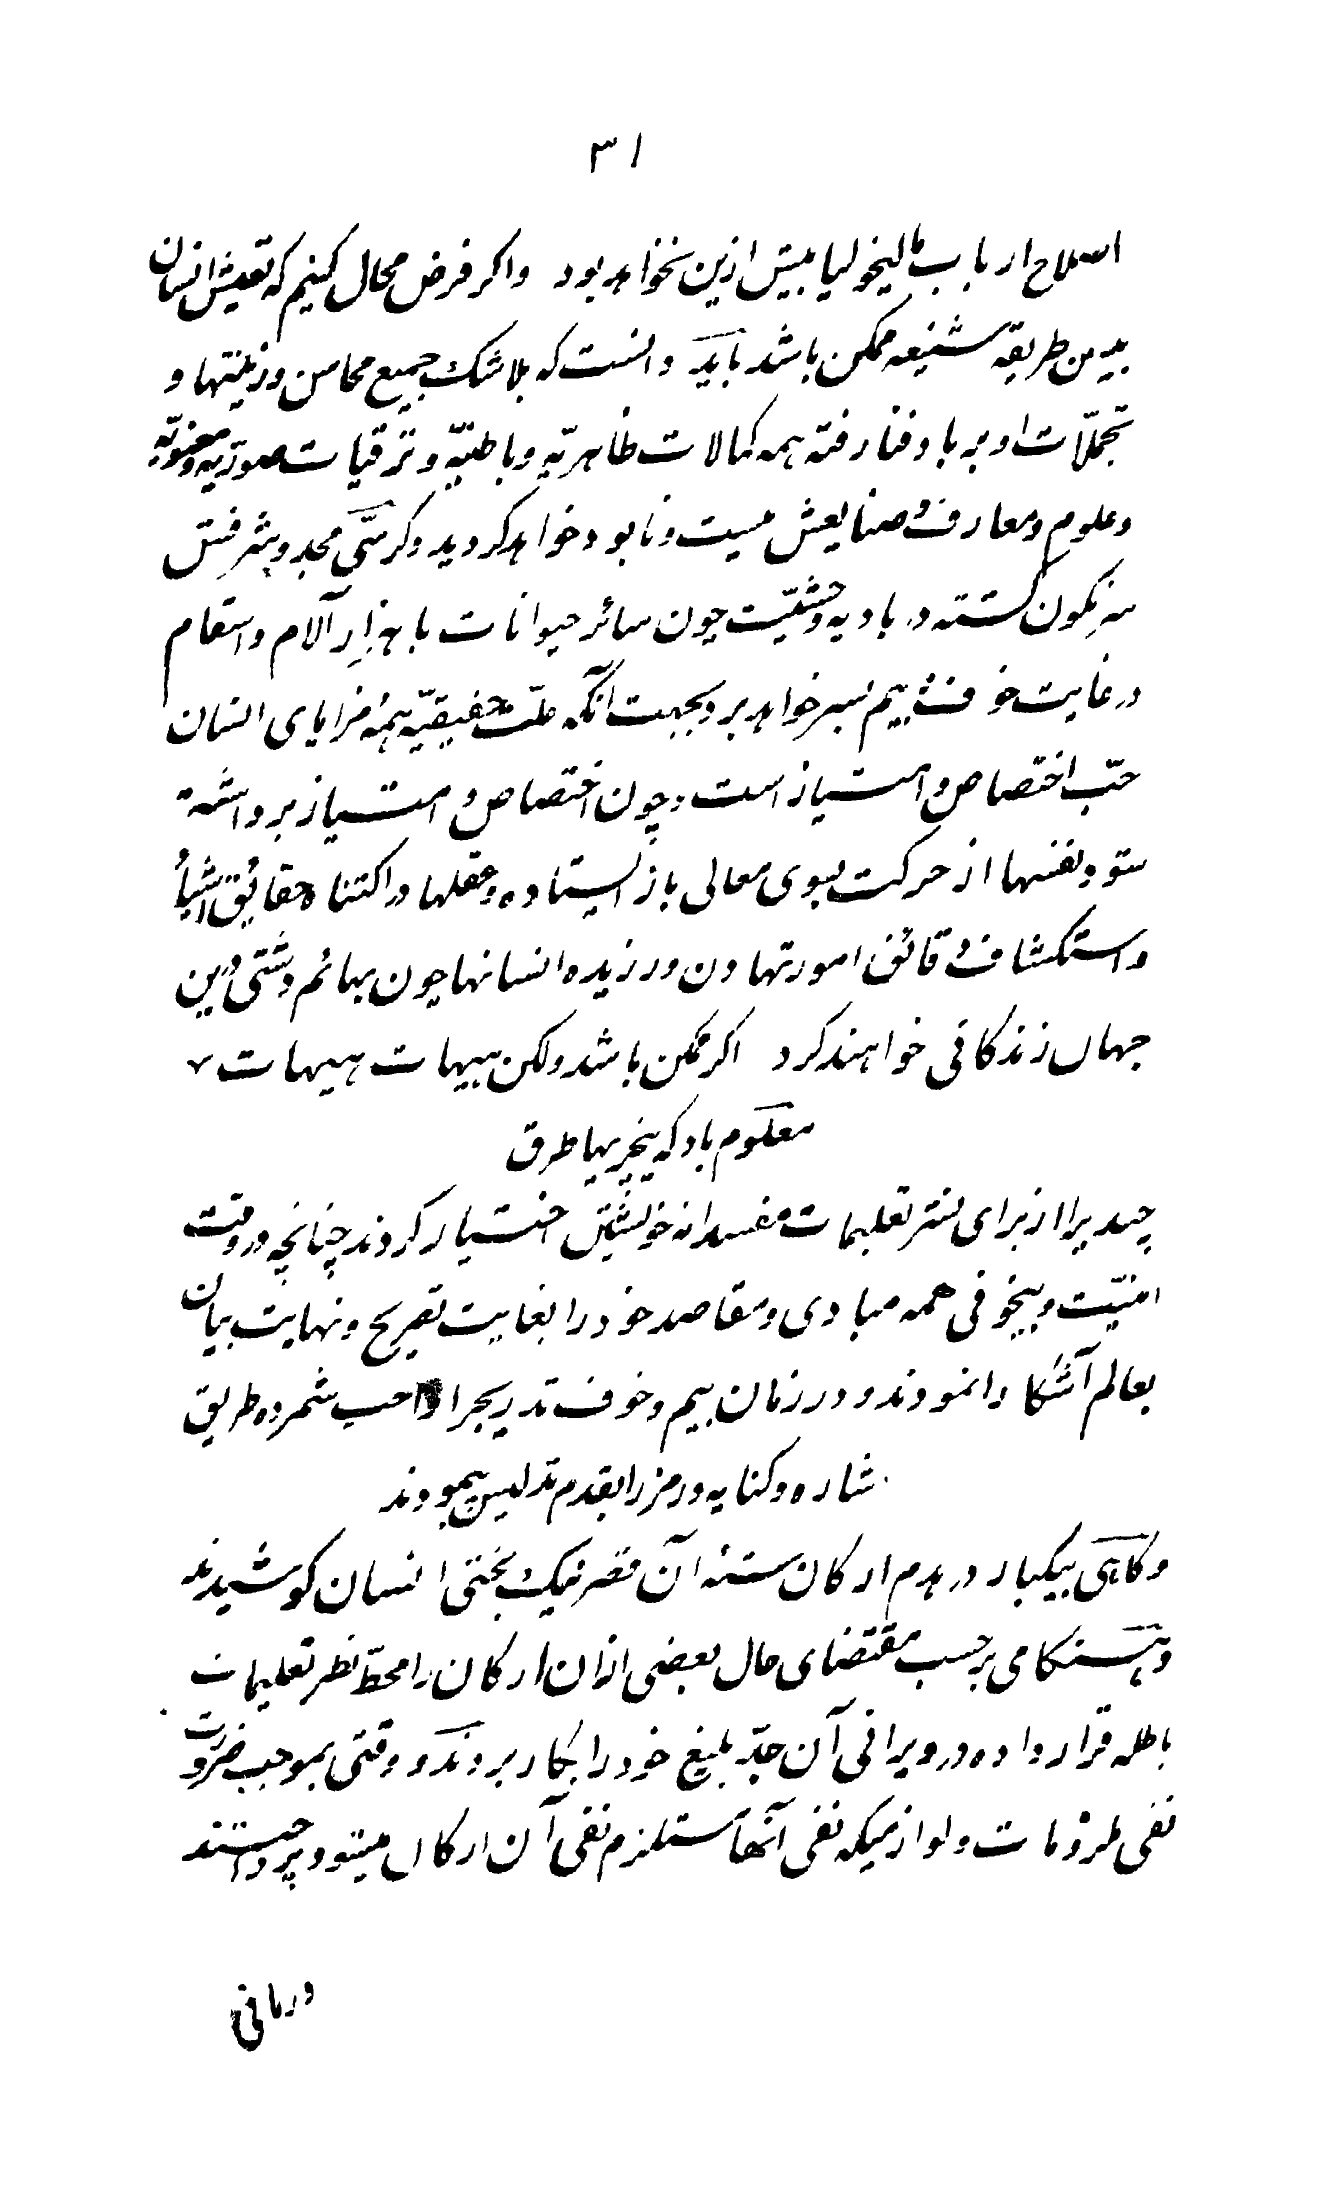 ۳۱
اصلاح ارباب مالیخولیا بیش ازین نخواهد بود واکر فرض محال کنیم که تعیش انسان
بدین طریقه شنیعه ممکن باشد باید دانست که بلا شک جمیع محاسن وزینتها و
تجملّات او بر باد فنا رفته همه کمالات ظاهریّه و باطنیّه و ترقیات صوریّه ومعنویّه
وعلوم ومعارف وصنایعش نیست ونابود خواهد کردید وکرسّی مجد وشرفتش
سرنکون کشته در بادیه وحشیّت چون سائر حیوانات با هزار آلام واسقام
در غایت خوف وبیم بسر خواهد برد بجهت آنکه علّت حقیقیّه همهٔ مزایای انسان
حبّ اختصاص و امتیاز است وچون اختصاص و امتیاز برداشته
شود نفسها از حرکت بسوی معالی باز ایستاده وعقلها در اکتناه حقایق اشیأ
واستکشاف دقائق امور تهاون ورزیده انسانها چون بهائم دشتی درین
جهان زندکانی خواهند کرد اکر ممکن باشد ولکن هیهات هیهات
معلوم باد که نیچریها طرق
چندیرا از برای نشر تعلیمات مفسدانه خویشتن اختیار کردند چنانچه در وقت
امنیّت وبیخوفی همه مبادی ومقاصد خود را بغایت تصریح ونهایت بیان
بعالم آشکارا نمودند و در زمان بیم وخوف تدریجرا واجب شمرده طریق
اشاره وکنایه ورمز را بقدم تدلیس پیمودند
وکاهی بیکبار در هدم ارکان ستهٔ آن قصر نیک بختی انسان کوشیدند
وهنکامی بر حسب مقتضای حال بعضی ازان ارکان را محطّ نظر تعلیمات
باطله قرار داده در ویرانی آن جدّ بلیغ خود را بکار بردند و وقتی بموجب ضرورت
نفی ملزومات ولوازمیکه نفی آنها مستلزم نفی آن ارکان میشود پرداختند
ورمانی